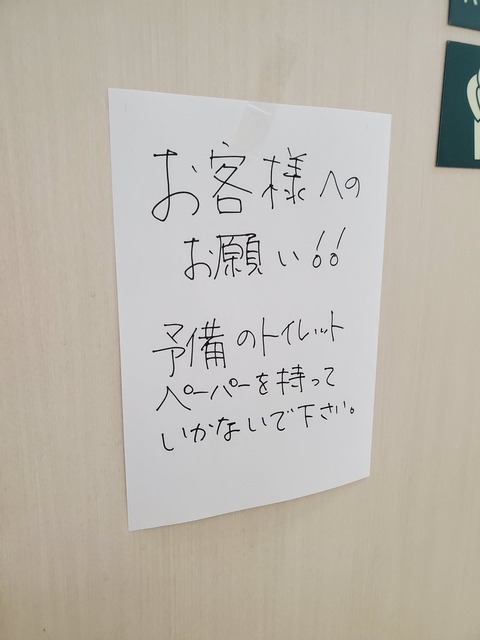 お客様への
お願い!!
予備のトイレット
ペーパーを持って
いかないで下さい。